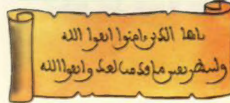 ىاىها الدىں امنوا اتقوا الله
ولتنظر نفس ما قدمت لغد واتقوا الله